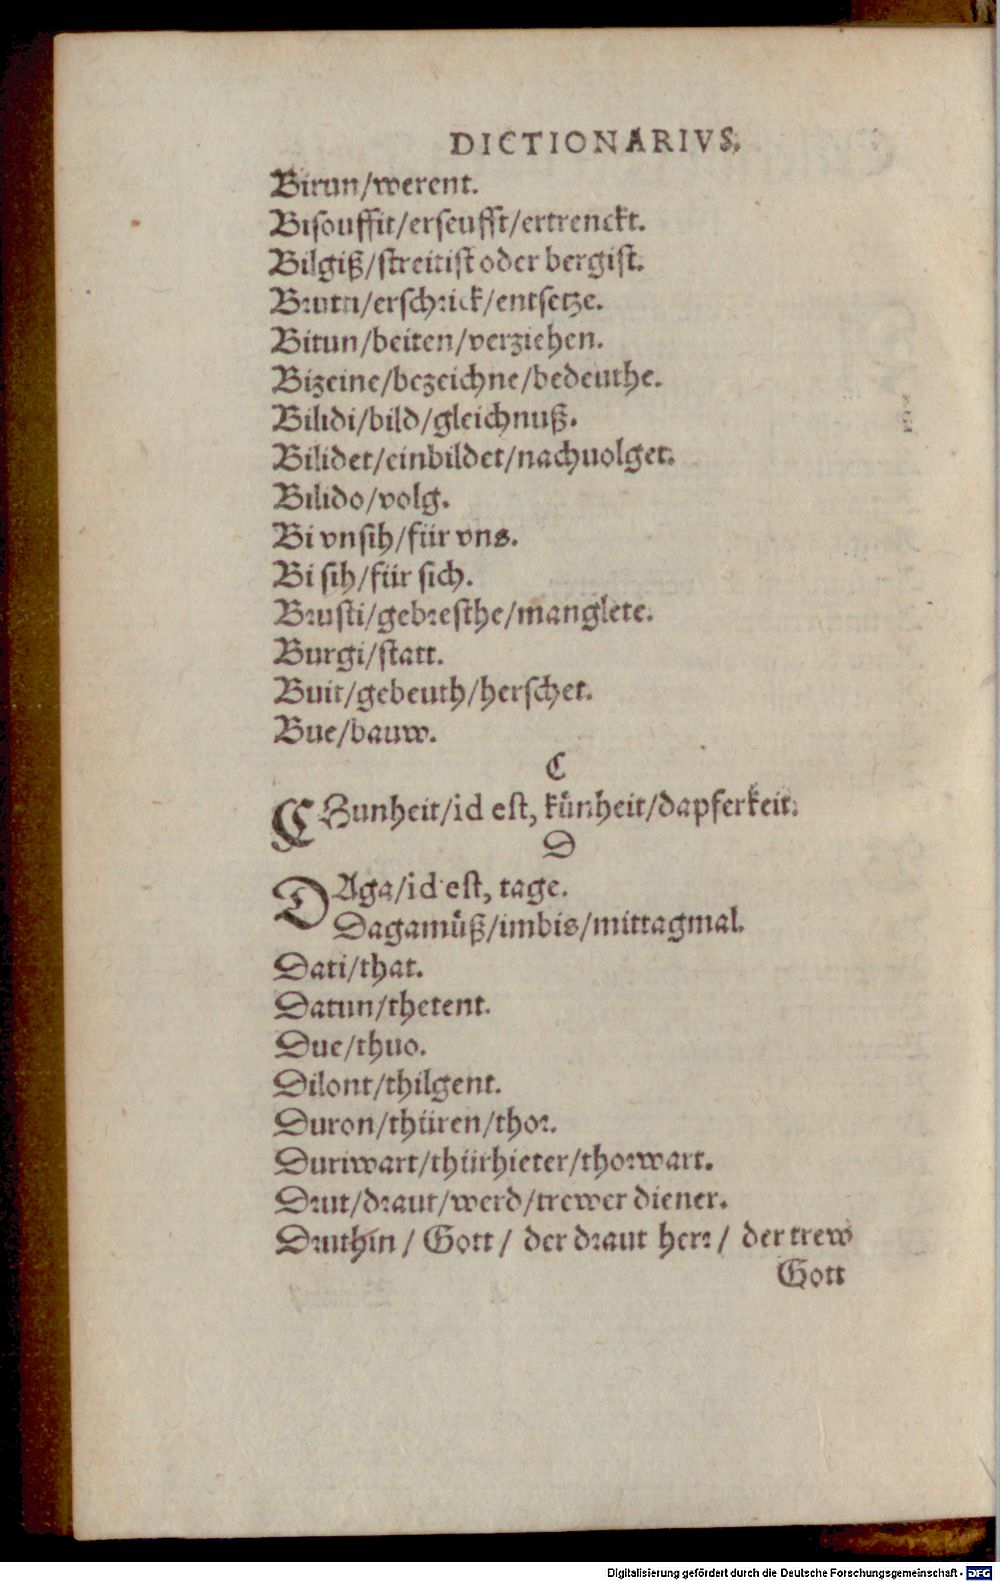 DICTIONARIVS.
Birun/werent.
Biſouffit/erſeufft/ertrenckt.
Bilgiß/ſtreitiſt oder bergiſt.
Brutti/erſchrick/entſetze.
Bitun/beiten/verziehen.
Bizeine/bezeichne/bedeuthe.
Bilidi/bild/gleichnuß.
Bilidet/einbildet/nachuolget.
Bilido/volg.
Bi vnſih/für vns.
Bi ſih/für ſich.
Bruſti/gebreſthe/manglete.
Burgi/ſtatt.
Buit/gebeuth/herſchet.
Bue/bauw.
C
CHunheit/id eſt, kůnheit/dapferkeit.
D
DAga/id eſt, tage.
Dagamůß/imbis/mittagmal.
Dati/that.
Datun/thetent.
Due/thuo.
Dilont/thilgent.
Duron/thüren/thor.
Duriwart/thürhieter/thorwart.
Drut/draut/werd/trewer diener.
Druthin / Gott / der draut herr / der trew
Gott
Digitalisierung gefördert durch die Deutsche Forschungsgemeinschaft - DFG